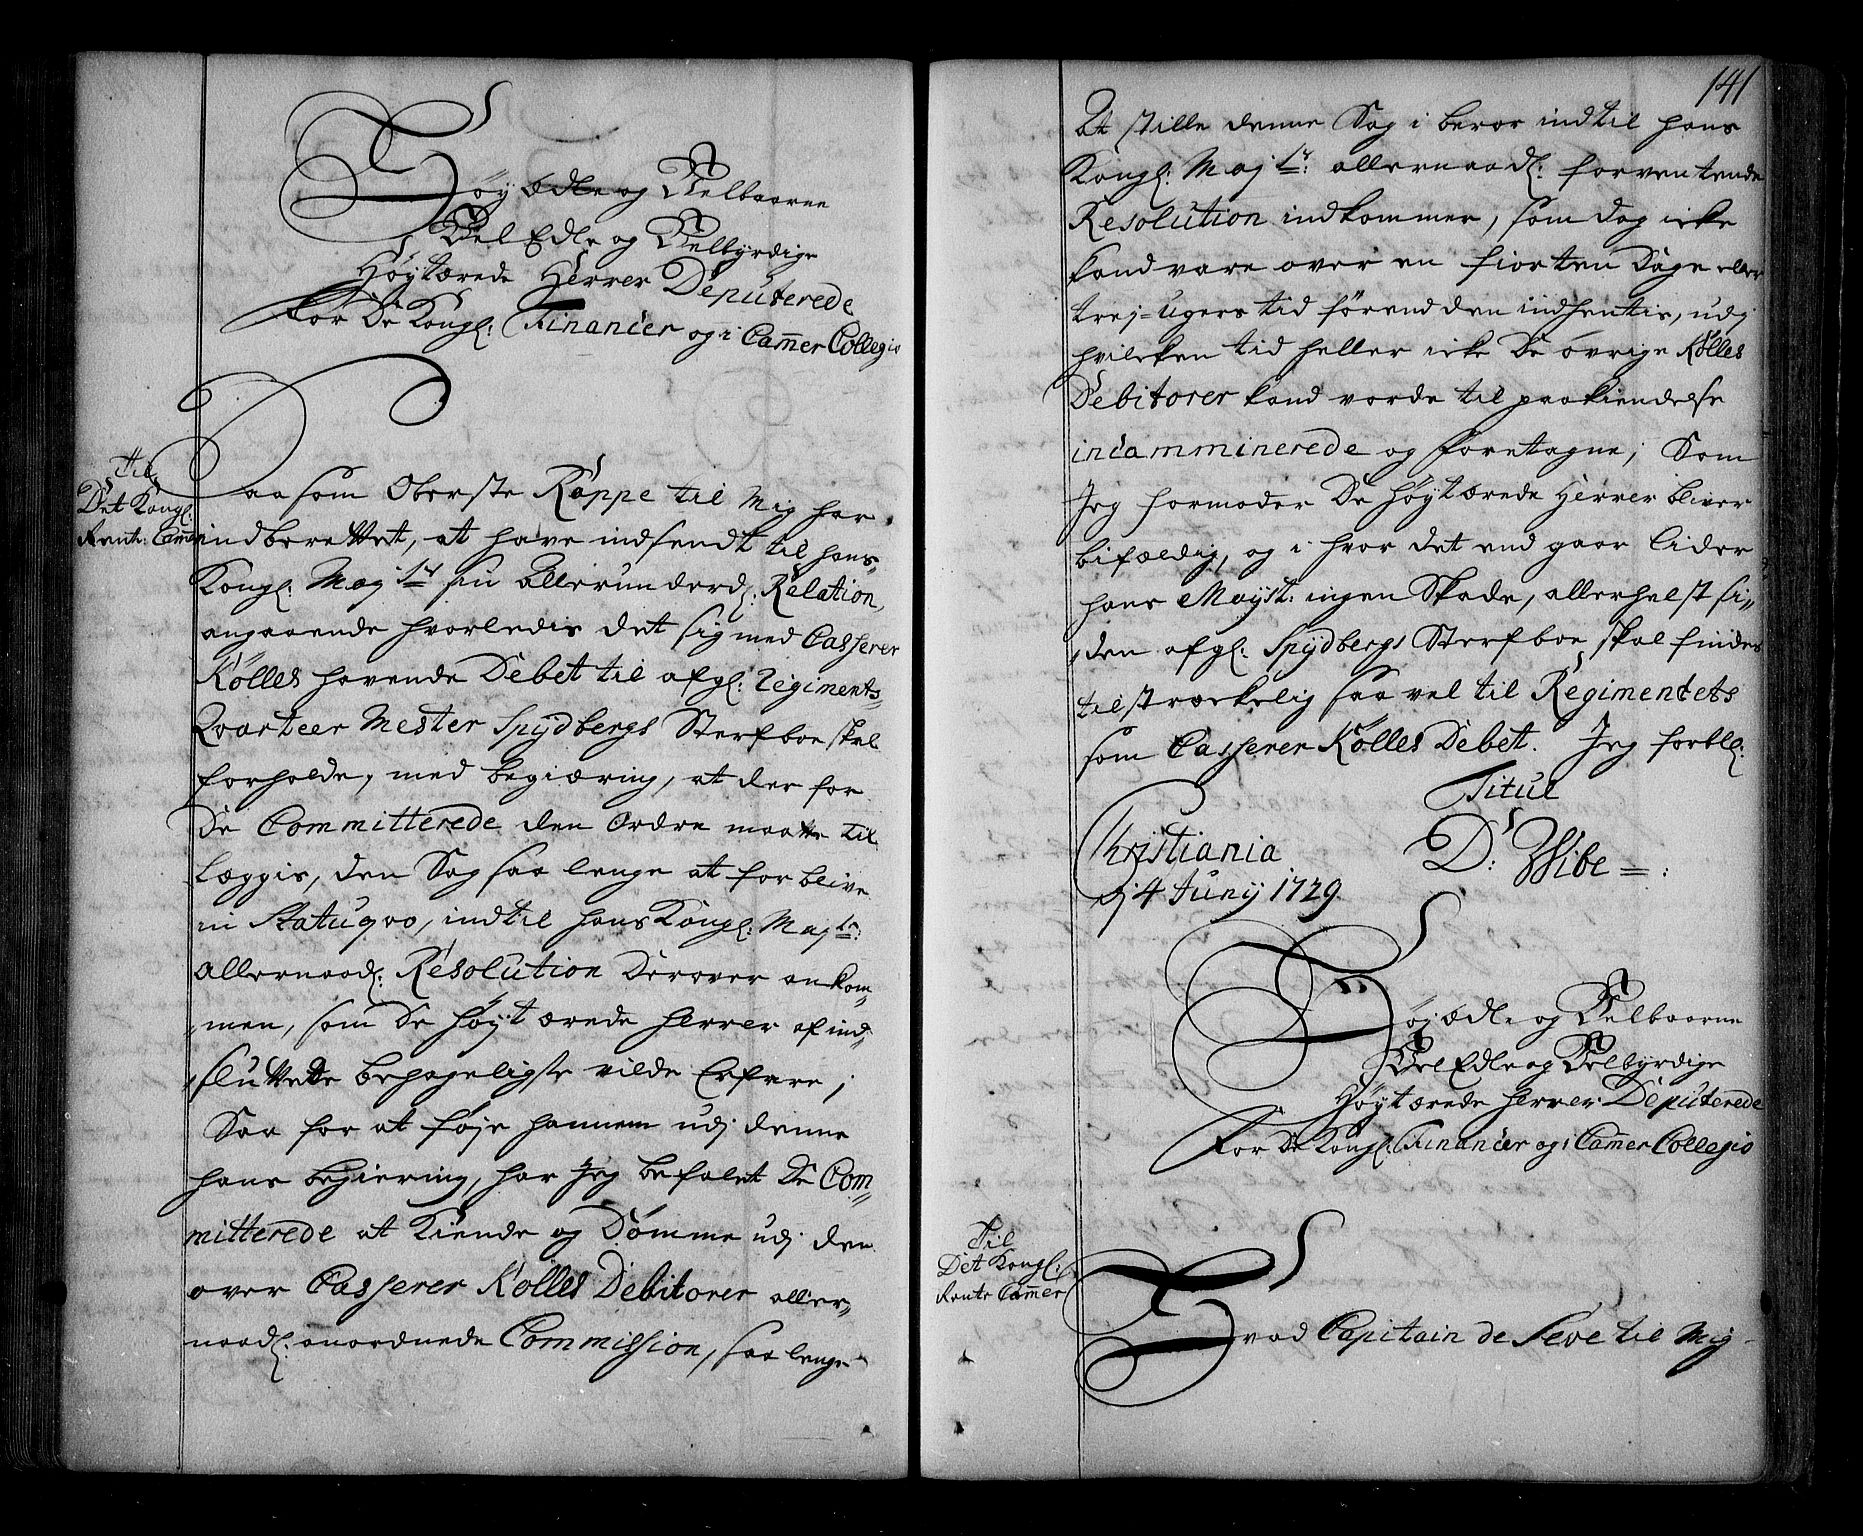 Høy Ædle og Velbaarne
Vel Edle og Velbyrdige
Høytærede Herrer Deputerede
for De Kongl: Financer og i Cammer Collegio
Til
Det Kongl:
Rente: Camer
Saasom Oberste Rappe til Mig har
indberettet, at have indsendt til hans
Kongl: Majts sin allerunderd: Relation,
angaaende hvorledis det sig med Casserer
Kølles havende Debet til afgl: Regiments
Qvarteer Mester Spÿdbergs Sterfboe skal
forholde, med begiæring, at der for
De Committerede den Ordre maatte til
Læggis, den Sag saa lenge at forblive
in Statuqvo, indtil hans Kongl: Majts:
Allernaad: Resolution derover ankom,,
men, som De høyt ærede Herrer af ind,,
sluttede behageligste vilde Erfare;
Saa for at føje hannem udj denne
hans begiering, har Jeg befalet De Com,,
mitterede at Kiende og Dømme udj den
over Casserer Kølles Debitorer aller,,
naad: anordnede Commission, saa lenge
141
At stille denne Sag i beroe indtil hans
Kongl: Majts: allernaad: forventende
Resolution indkommer, som dog icke
kand vare over en fiorten Dage eller
trej-Ugers tid førend den indhentis, udj
hvilcken tid heller icke De øvrige Kølles
Debitorer kand vorde til paakiendelse
incamminerede og foretagne; Som
Jeg formoder De høytærede Herrer bliver
bifældig, og i hvor det end gaar lider
hans Mayst: ingen Skade, allerhelst si,,
den afgl: Spÿdbergs Sterfboe skal findes
tilstræckelig saa vel til Regimentets
som Casserer Kølles Debet. Jeg forbl:
Titul
Christiania
D: Wibe
d. 4 Junÿ 1729.
Høj ædle og Velbaarne
Vel Edle og Velbyrdige
Høytærede herrer Deputerede
for De Kongl: Financer og i Camer Collegio
Til
Det Kongl:
Rente Camer
Hvad Capitain de Seve til Mig